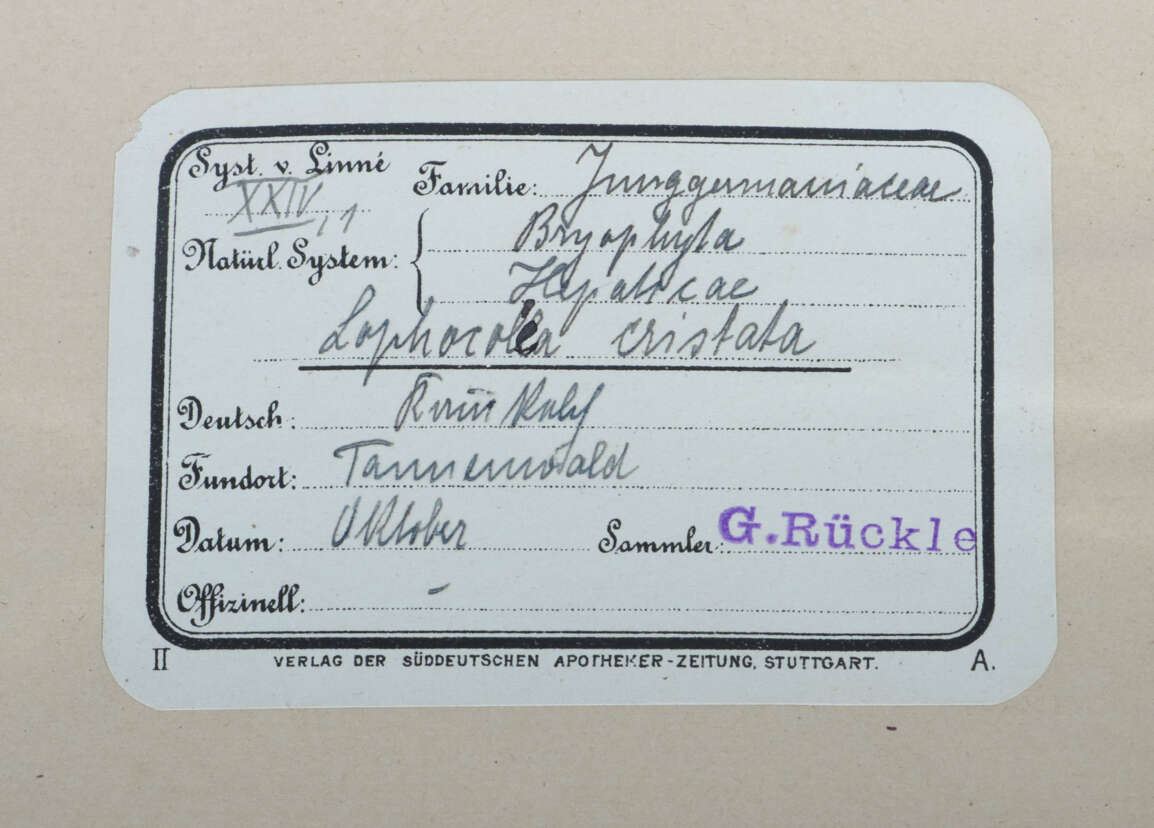 Syst. v. Linné
XXIV, 1
Familie: Junggermaniaceae
Natürl. System: Bryophyta
Hepaticae
Lophocolea cristata
Deutsch:
Fundort: Tannenwald
Datum: Oktober Sammler: G. Rückle
Offizinell: -
II VERLAG DER SÜDDEUTSCHEN APOTHEKER-ZEITUNG, STUTTGART. A.